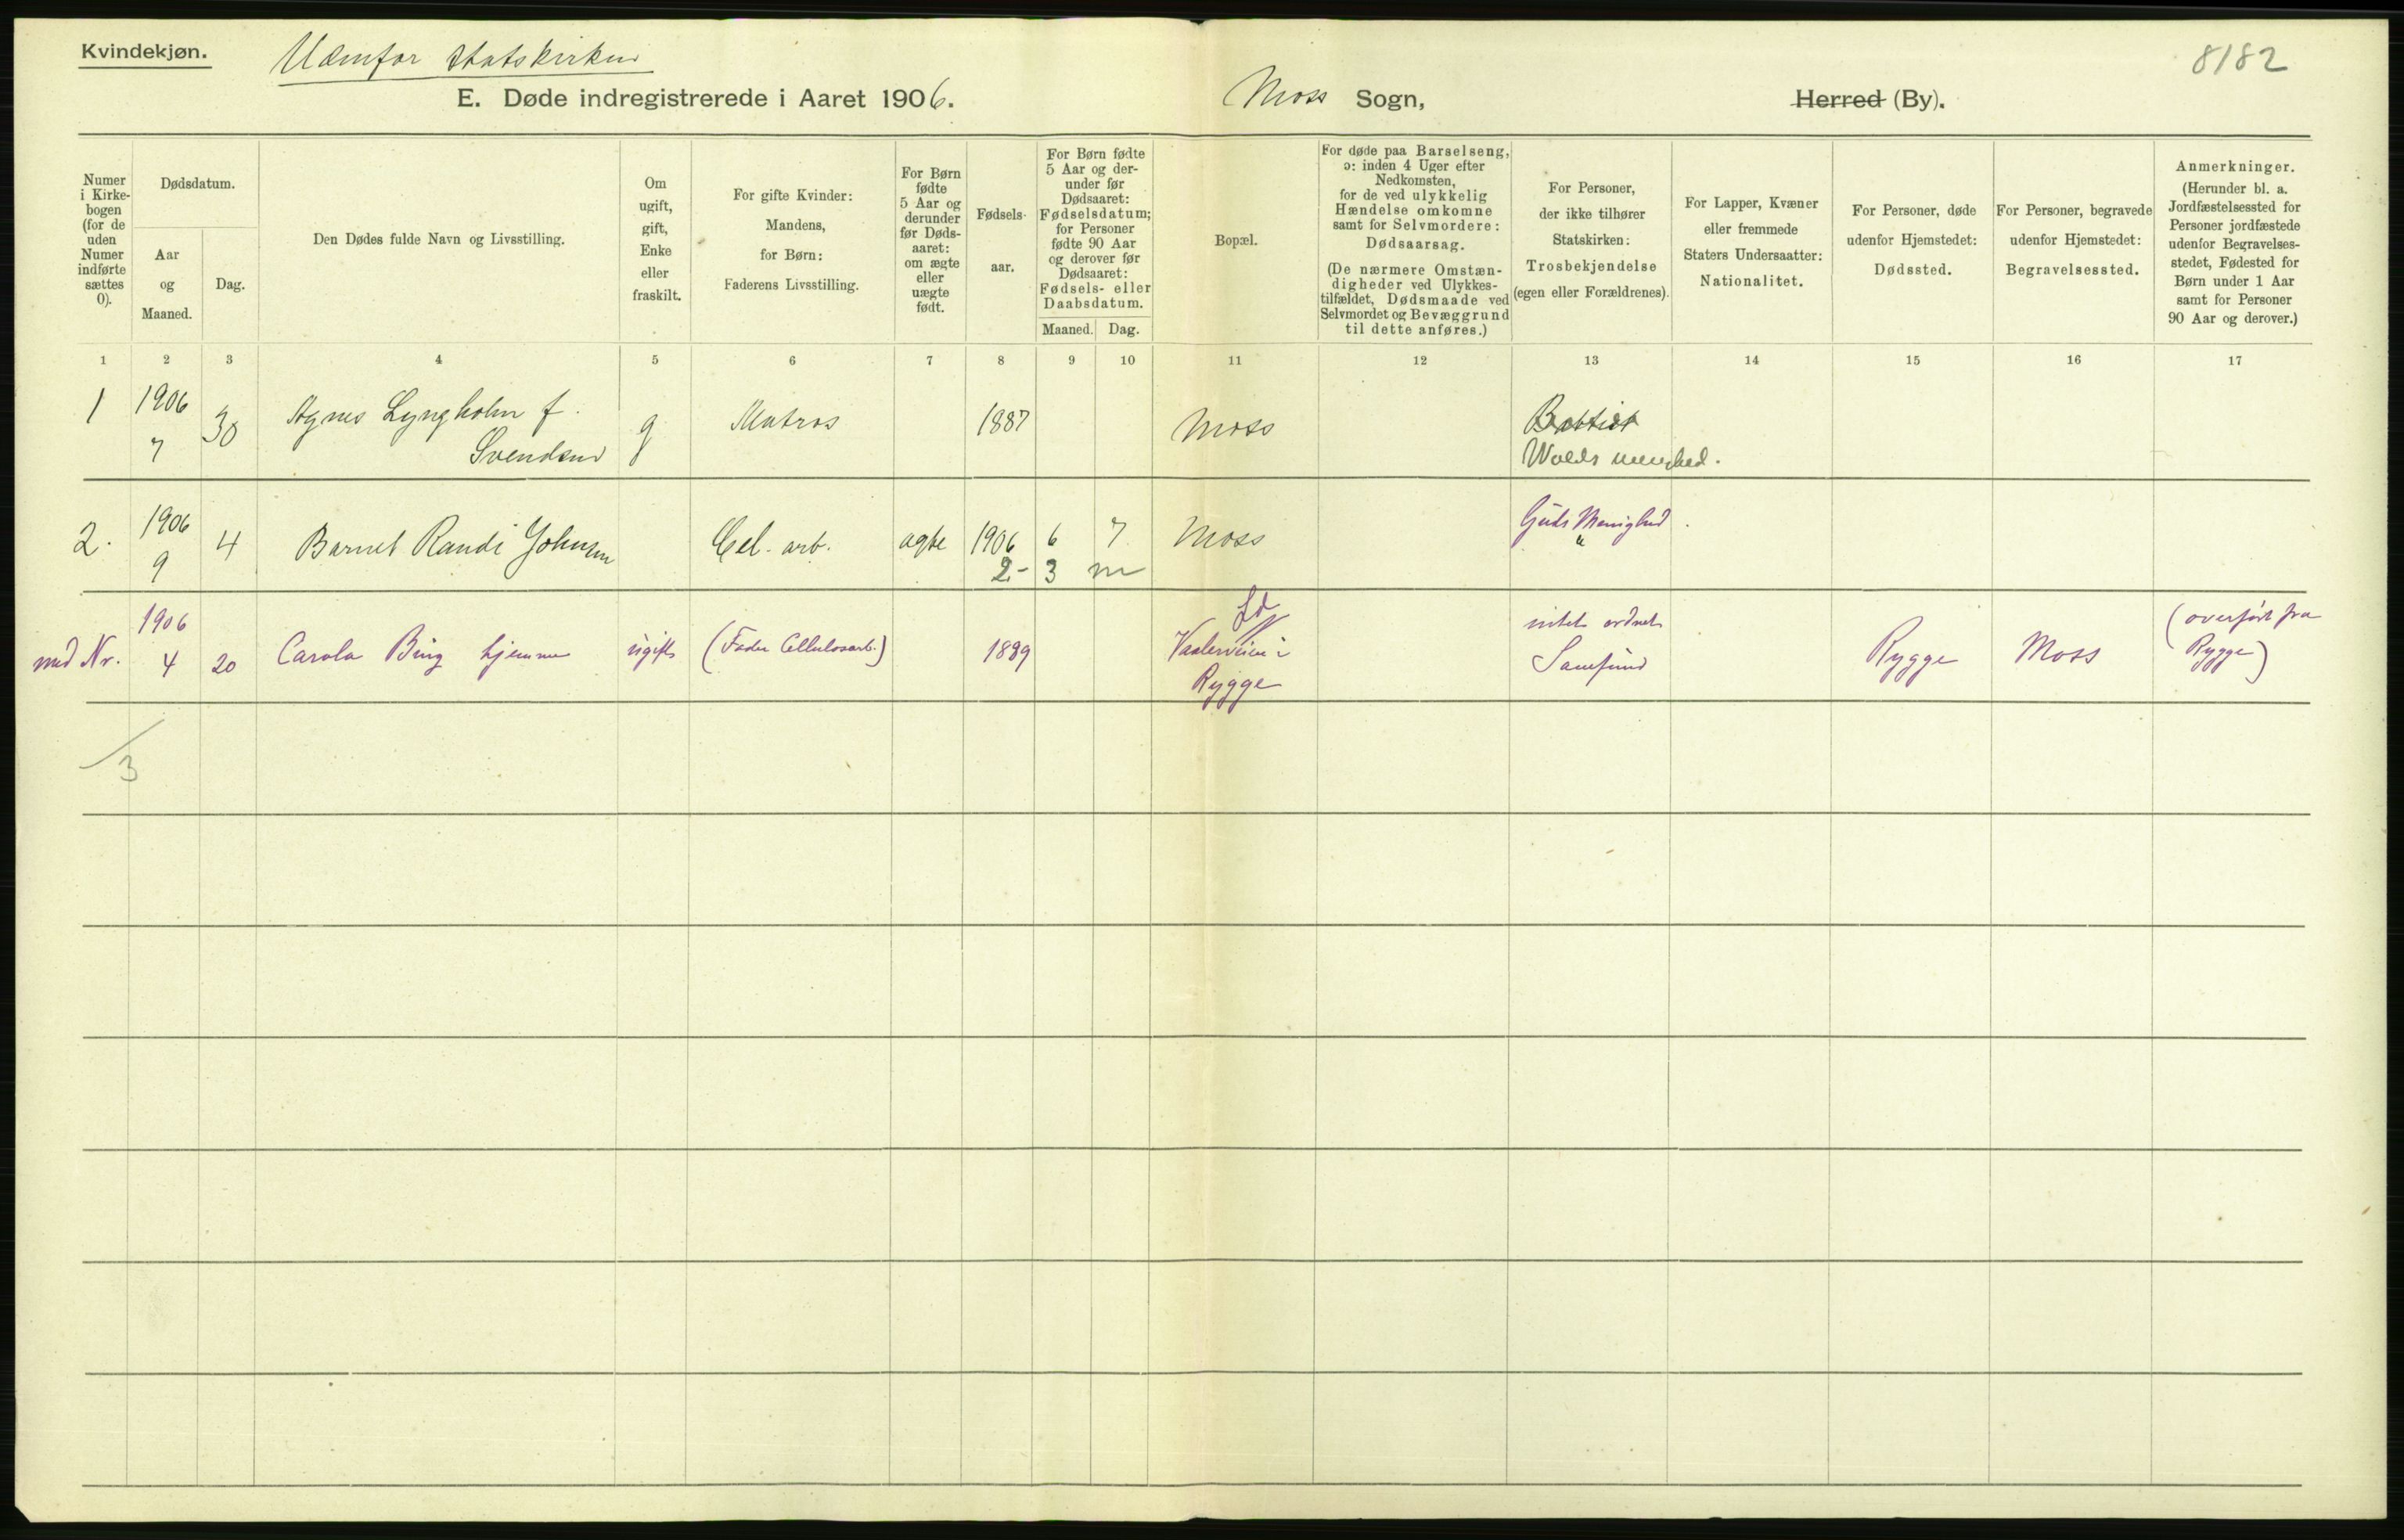 Kvindekjøn.
Udenfor statskirken
8182
E. Døde indregistrerede i Aaret 1906.
Moss Sogn,
Herred (By).
Numer
i Kirke-
bogen
(for de
uden
Numer
indførte
sættes
0).
Dødsdatum.
Aar
og
Maaned.
Dag.
Den Dødes fulde Navn og Livsstilling.
Om
ugift,
gift,
Enke
eller
fraskilt.
For gifte Kvinder:
Mandens,
for Børn:
Faderens Livsstilling.
For Børn
fødte
5 Aar og
derunder
før Døds-
aaret:
om ægte
eller
uægte
født.
Fødsels-
aar.
For Børn fødte
5 Aar og der-
under før
Dødsaaret:
Fødselsdatum;
for Personer
fødte 90 Aar
og derover før
Dødsaaret:
Fødsels- eller
Daabsdatum.
Maaned. Dag.
Bopæl.
For døde paa Barselseng,
ɔ: inden 4 Uger efter
Nedkomsten,
for de ved ulykkelig
Hændelse omkomne
samt for Selvmordere:
Dødsaarsag.
(De nærmere Omstæn-
digheder ved Ulykkes-
tilfældet, Dødsmaade ved
Selvmordet og Bevæggrund
til dette anføres.)
For Personer,
der ikke tilhører
Statskirken:
Trosbekjendelse
(egen eller Forældrenes).
For Lapper, Kvæner
eller fremmede
Staters Undersaatter:
Nationalitet.
For Personer, døde
udenfor Hjemstedet:
Dødssted.
For Personer, begravede
udenfor Hjemstedet:
Begravelsessted.
Anmerkninger.
(Herunder bl. a.
Jordfæstelsessted for
Personer jordfæstede
udenfor Begravelses-
stedet, Fødested for
Børn under 1 Aar
samt for Personer
90 Aar og derover.)
1 2 3 4 5 6 7 8 9 10 11 12 13 14 15 16 17
1 1906 7 30 Agnes Lyngholm f.
Svendsen g Matros 1887 Moss
Babtist
menighed.
2. 1906 9 4 Barnet Randi Johnsen Cel. arb. ægte 1906 6 7 Moss Guds Menighed.
2 - 3 m
med Nr. 1906 4 20 Carola Bing hjemme ugift (Fader Cellulosearb.) 1889
Vaalerveien i
Rygge
intet ordnet
Samfund
Rygge Moss
(overført fra
Rygge)
3